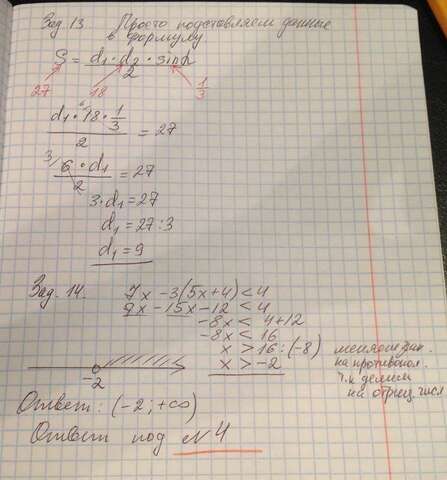 Зад 13 Просто подставляем данные
в формулу
S = d₁·d₂·sinα
2
27 18 1/3
d₁·18·1/3
2
= 27
3/ 6·d₁
2
= 27
3·d₁=27
d₁ = 27:3
d₁ = 9
Зад. 14. 7x -3(5x+4)<4
7x -15x-12 <4
-8x< 4+12
-8x < 16
x > 16:(-8)
x > -2
меняем зн.
на противопол.
т.к делим
на отриц. числ
-2
Ответ: (-2;+∞)
Ответ под №4